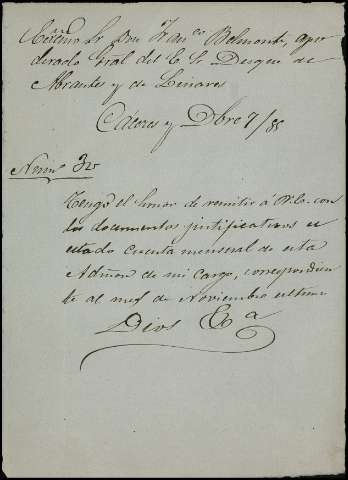 Sr. Don Franco. Belmonte, apo
derado Gral del E. Sr. Duque de
Abrantes y de Linares
Cáceres y Dbre 7/88
Núm 32
Tengo el honor de remitir á V. con
los documentos justificativos el
estado cuenta mensual de esta
Admon de mi cargo, correspondien
te al mes de Noviembre último
Dios Ea